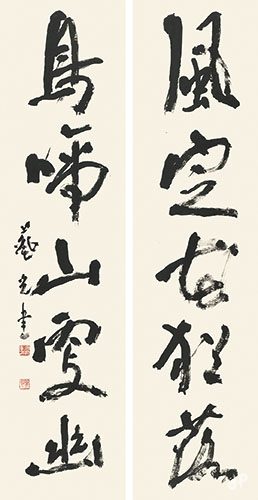 風定花猶落
鳥啼山更幽
藝光書